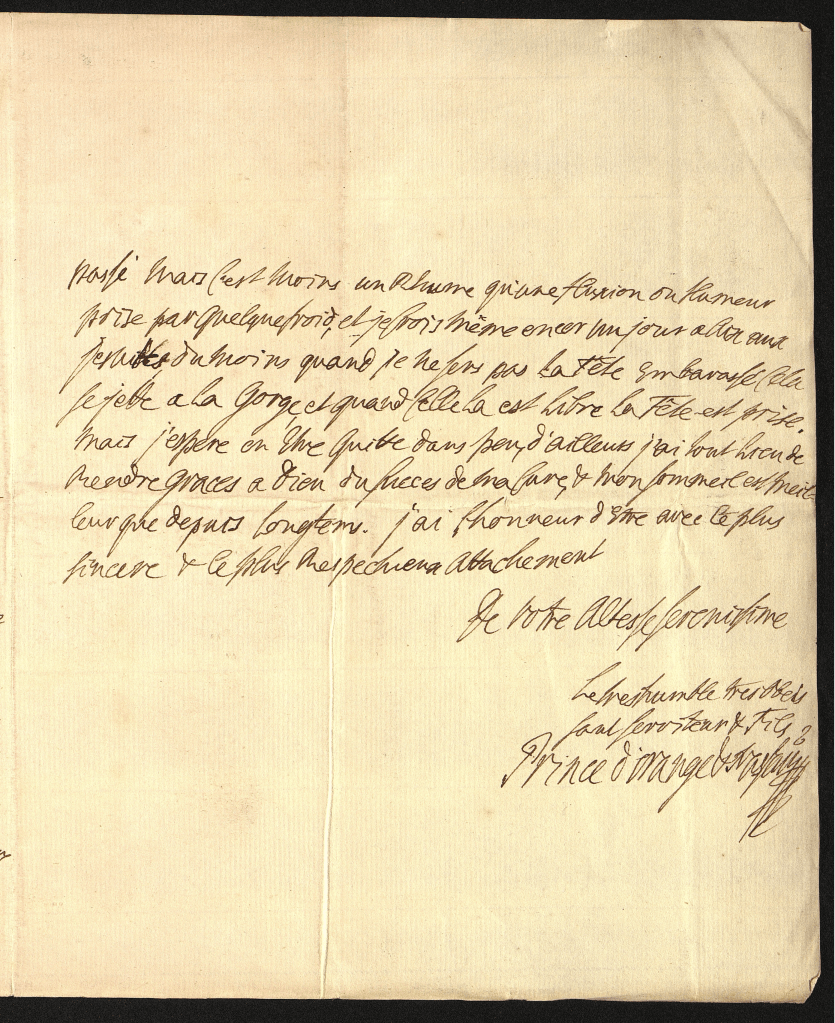 passé mais c'est moins un Rhume qu'une fluxion ou humeur
prise par quelque froid, et je crois même encor un jour
du moins quand je ne sens pas la Tête Embarassé Cela
se jette a la Gorge, et quand Celle la est libre la Tête est prise.
mais j'espere en être quitte dans peu, d'ailleurs j'ai tout lieu de
Rendre Graces a Dieu du succes de ma Cure, & mon sommeil est meil-
leur que depuis longtems. j'ai l'honneur d'Etre avec le plus
sincere & le plus Respectueux Attachement
De Votre Altesse Serenissime
Le tres humble tres obeis
sant serviteur & Fils
Prince d'orange & Nassau